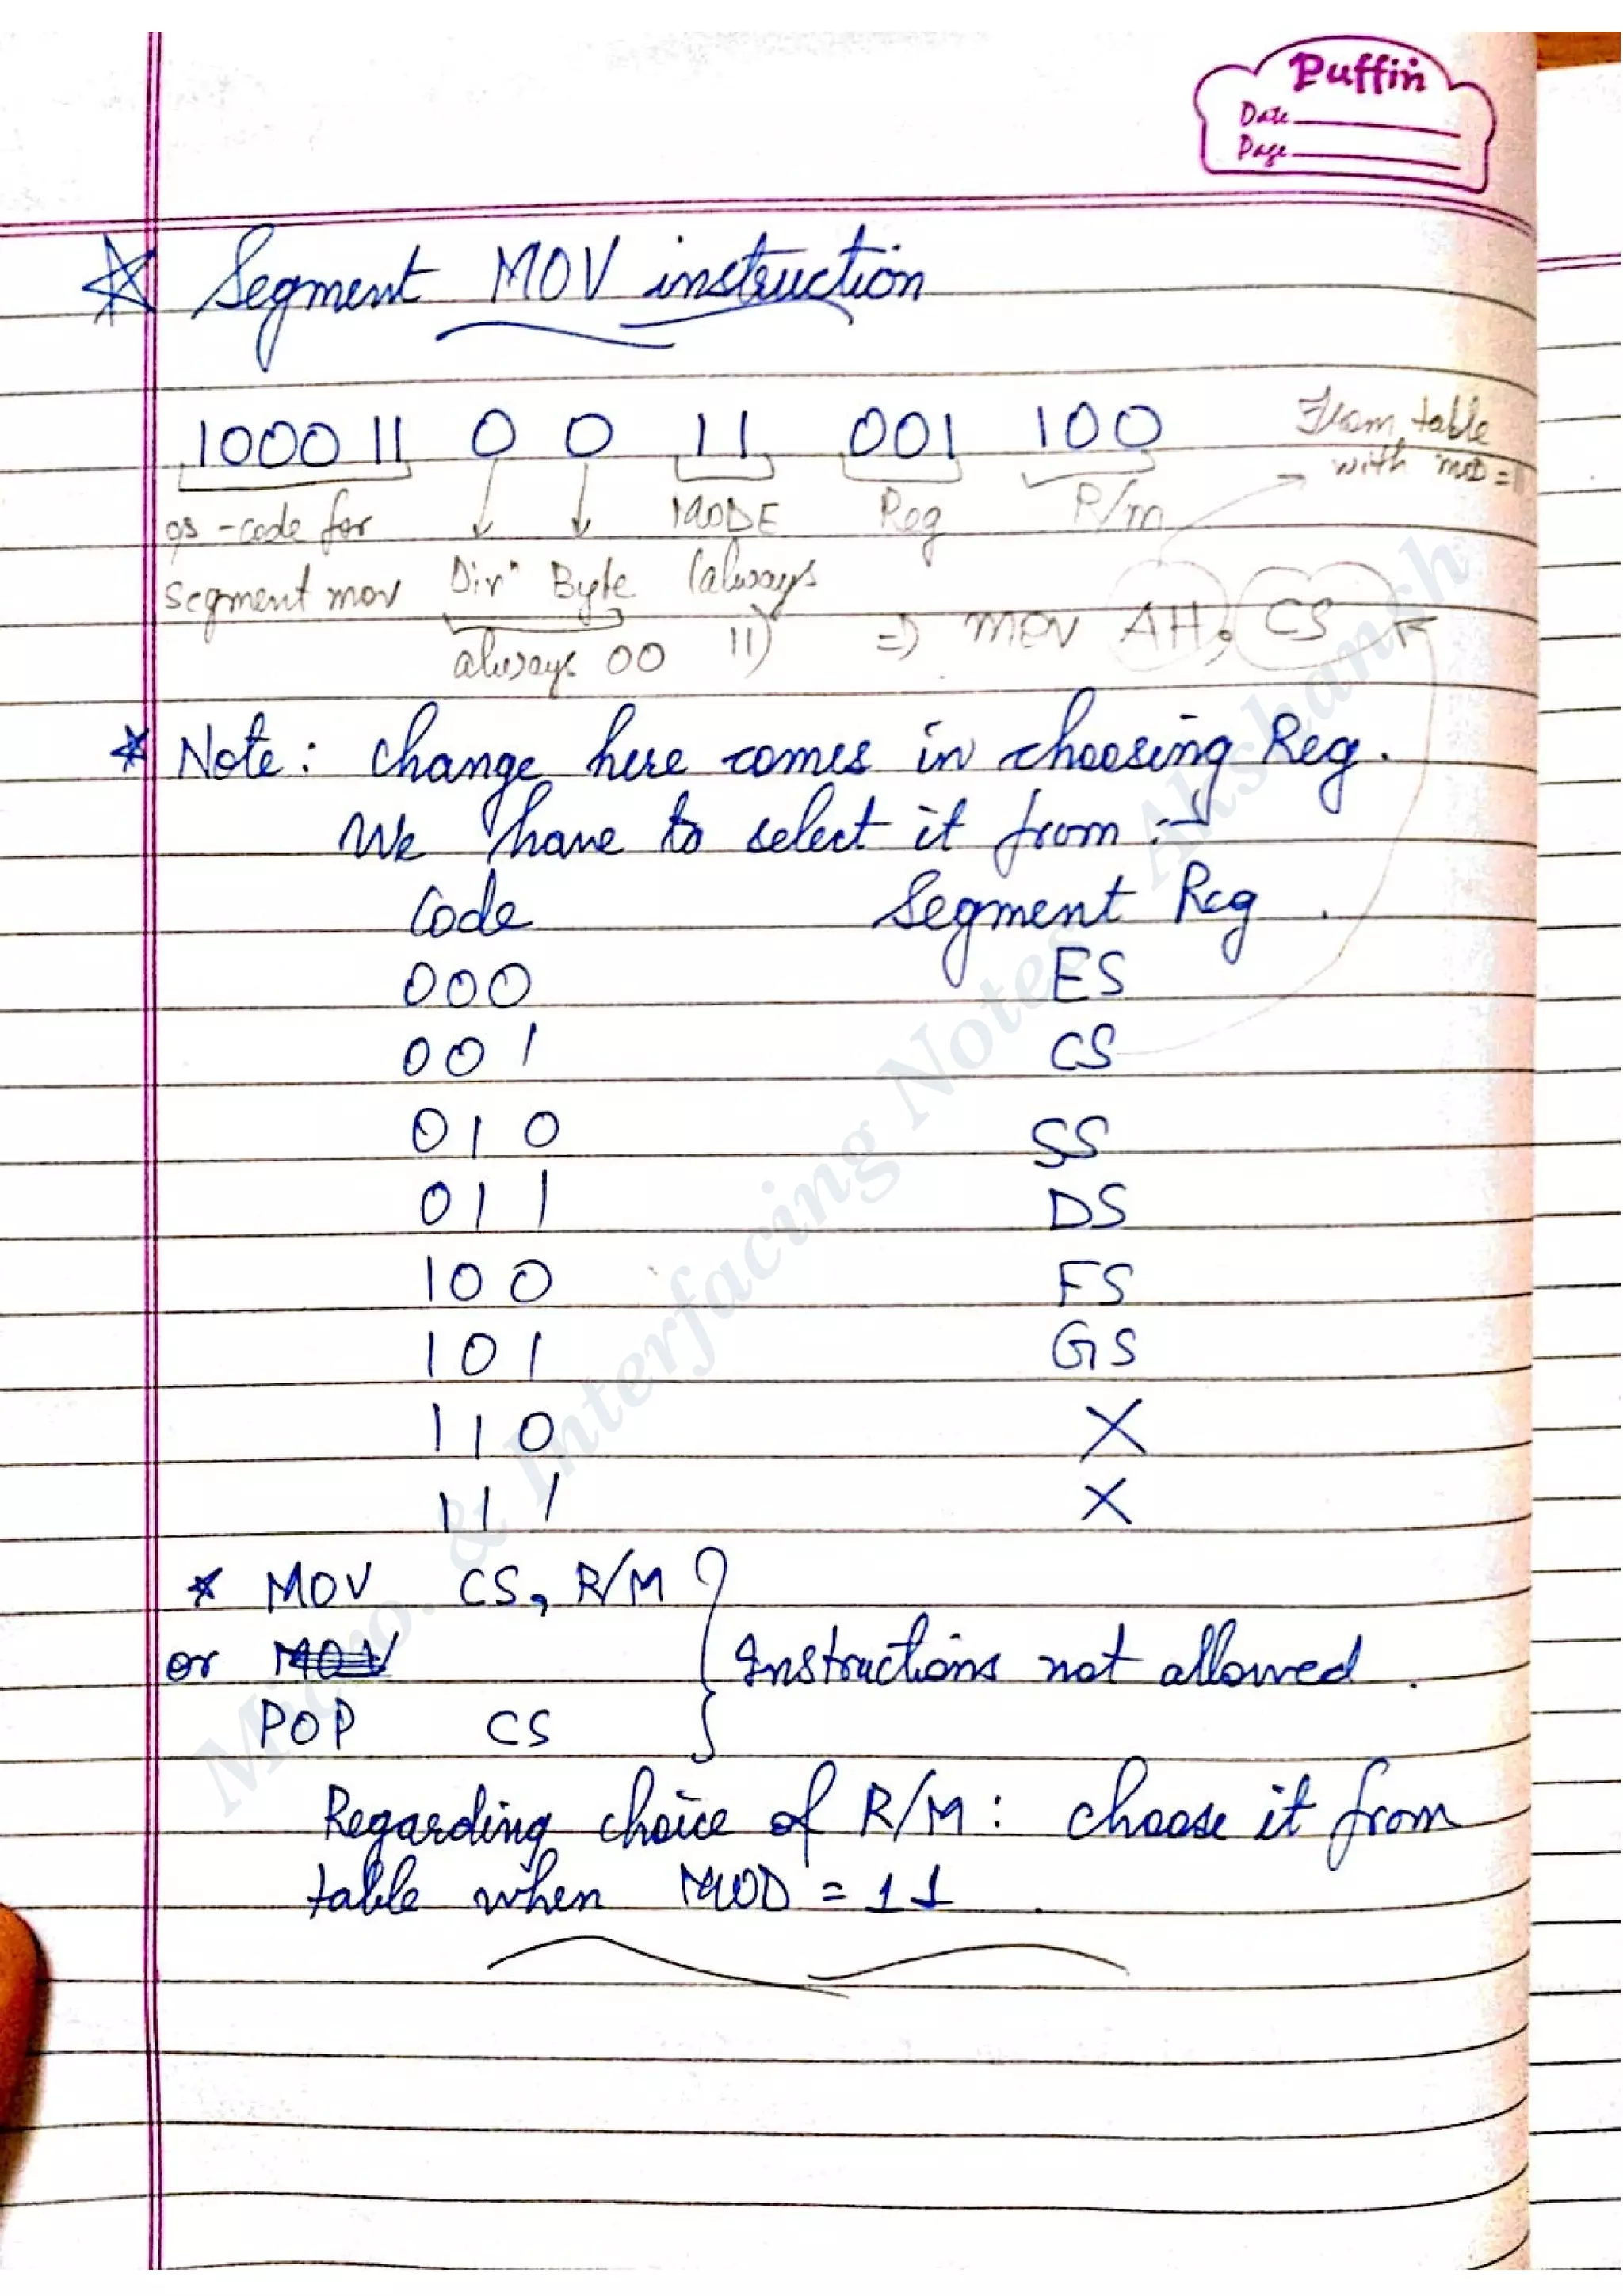 Puffin
Date
Page
Segment MOV instruction
100011 0 0 11 001 100
From table
with MOD = 11
op-code for
segment mov
Dirn Byte
always 00
MODE
(always
11)
Reg
R/m
=> MOV AH, CS
* Note: Change here comes in choosing Reg.
We have to select it from :-
Code Segment Reg.
000 ES
001 CS
010 SS
011 DS
100 FS
101 GS
110 X
111 X
* MOV CS, R/M
or
POP CS
Instructions not allowed.
Regarding choice of R/M: choose it from
table when MOD = 11.
Micro. & Interfacing Notes Akshansh